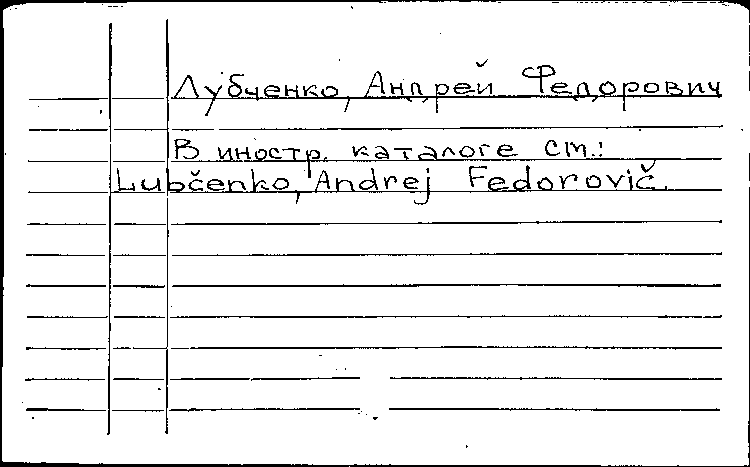 Лубченко, Андрей Федорович
В иностр. каталоге см.:
Lubčenko, Andrej Fedorovič.